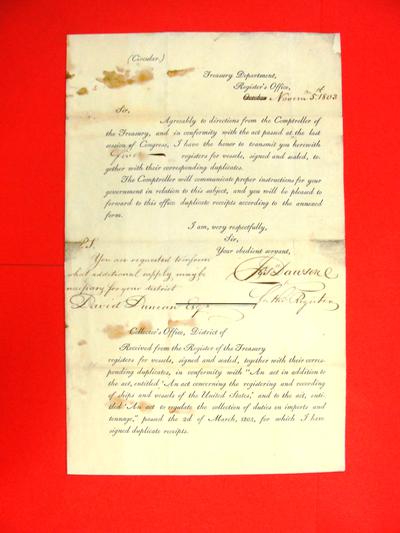 (Circular.)
Treasury Department,
Register's Office,
Novem 5th 1803
Sir,
Agreeably to directions from the Comptroller of
the Treasury, and in conformity with the act passed at the last
session of Congress, I have the honor to transmit you herewith
Five registers for vessels, signed and sealed, to-
gether with their corresponding duplicates.
The Comptroller will communicate proper instructions for your
government in relation to this subject, and you will be pleased to
forward to this office duplicate receipts according to the annexed
form.
I am, very respectfully,
Sir,
Your obedient servant,
P.S.
You are requested to inform
what additional supply may be
necessary for your district
Jos Dawson
for the Register
David Duncan Esqr
Collector's Office, District of
Received from the Register of the Treasury
registers for vessels, signed and sealed, together with their corres-
ponding duplicates, in conformity with "An act in addition to
the act, entitled 'An act concerning the registering and recording
of ships and vessels of the United States,' and to the act, enti-
tled 'An act to regulate the collection of duties on imports and
tonnage," passed the 2d of March, 1803, for which I have
signed duplicate receipts.